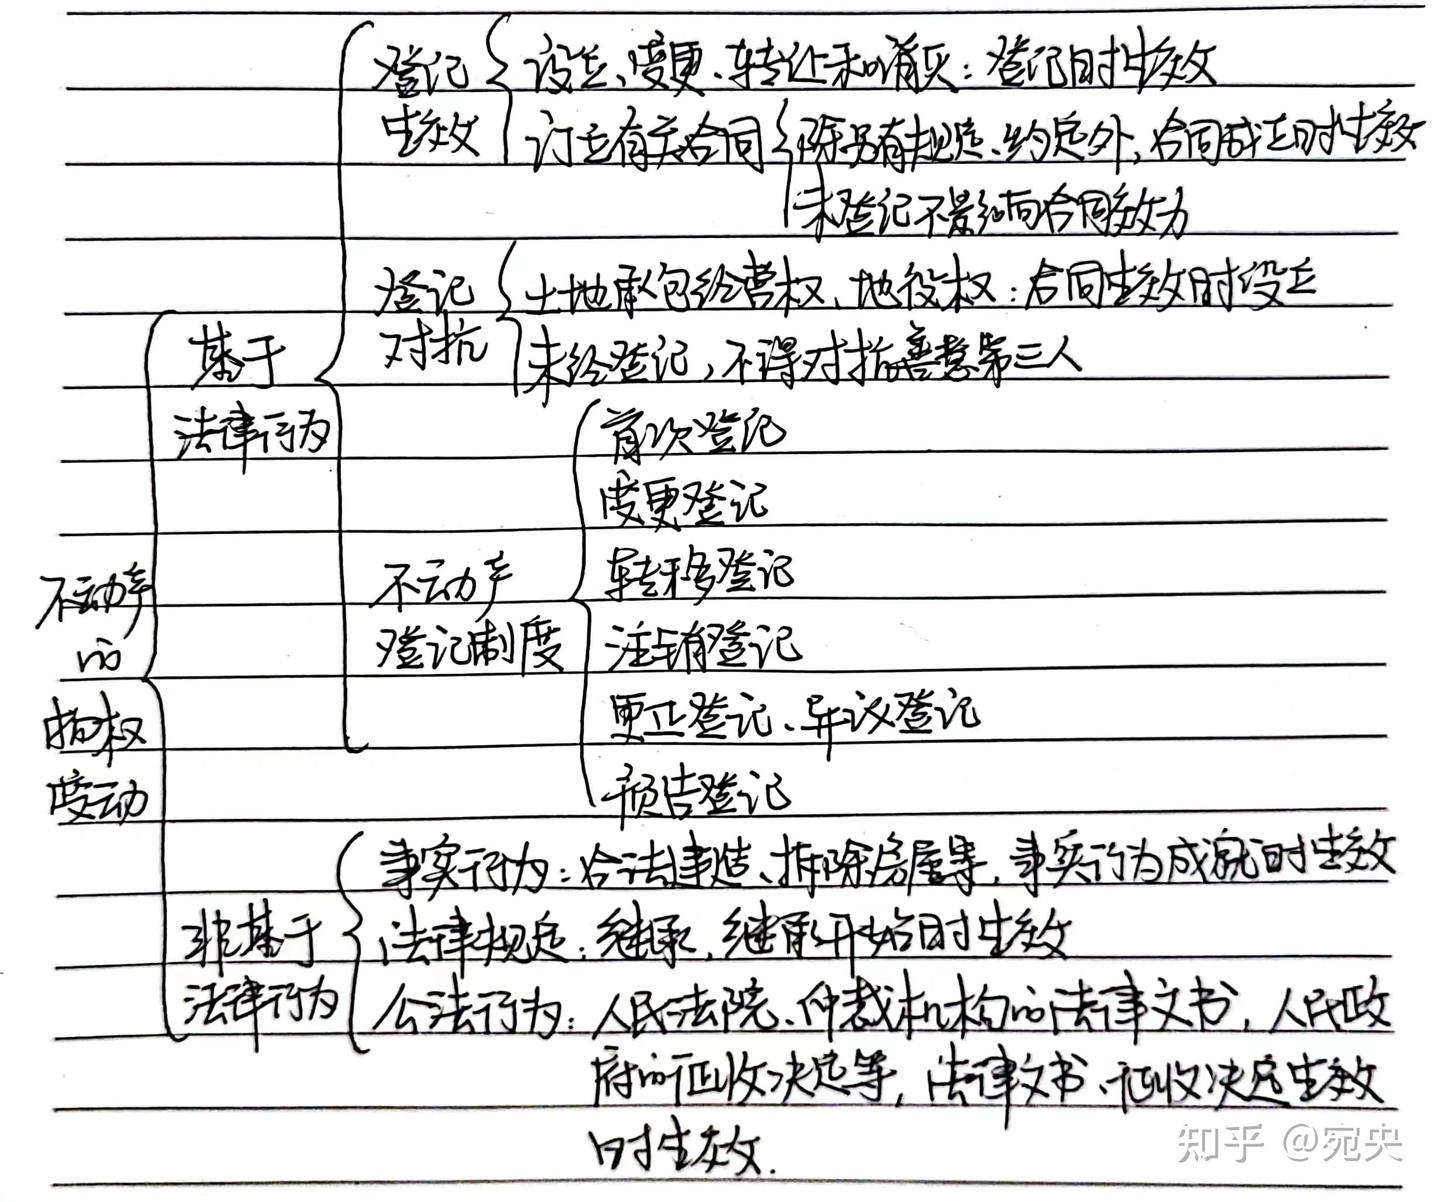 登记 设立、变更、转让和消灭：登记时生效
生效 订立有关合同 除另有规定、约定外，合同成立时生效
未登记不影响合同效力
登记 土地承包经营权、地役权：合同生效时设立
对抗 未经登记，不得对抗善意第三人
基于
法律行为
首次登记
变更登记
不动产 转移登记
登记制度 注销登记
更正登记、异议登记
预告登记
不动产
的
物权
变动
事实行为：合法建造、拆除房屋等，事实行为成就时生效
非基于 法律规定：继承，继承开始时生效
法律行为 公法行为：人民法院、仲裁机构的法律文书，人民政
府的征收决定等，法律文书、征收决定生效
时生效.
知乎 @宛央